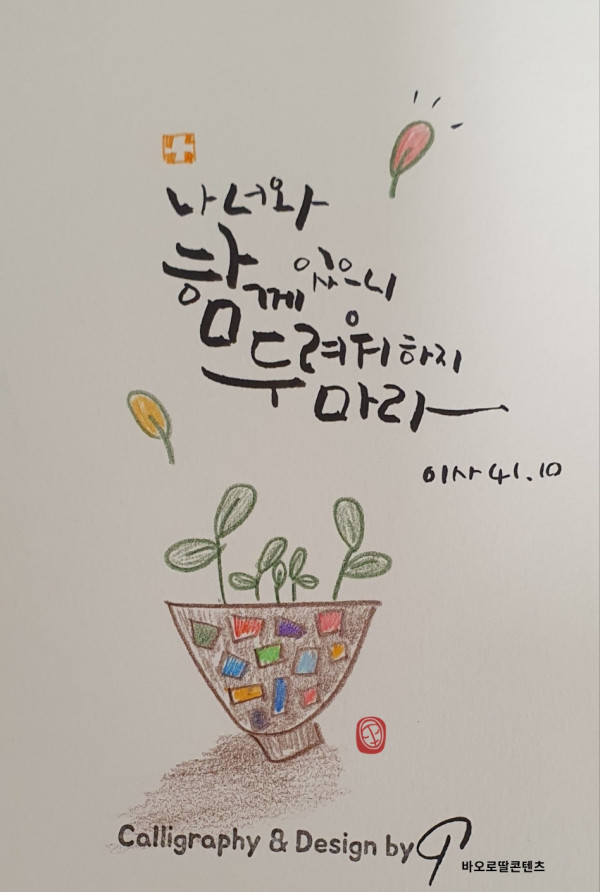 나 너와
함께 있으니
두려워하지
마라
이사 41.10
Calligraphy & Design by
바오로딸콘텐츠